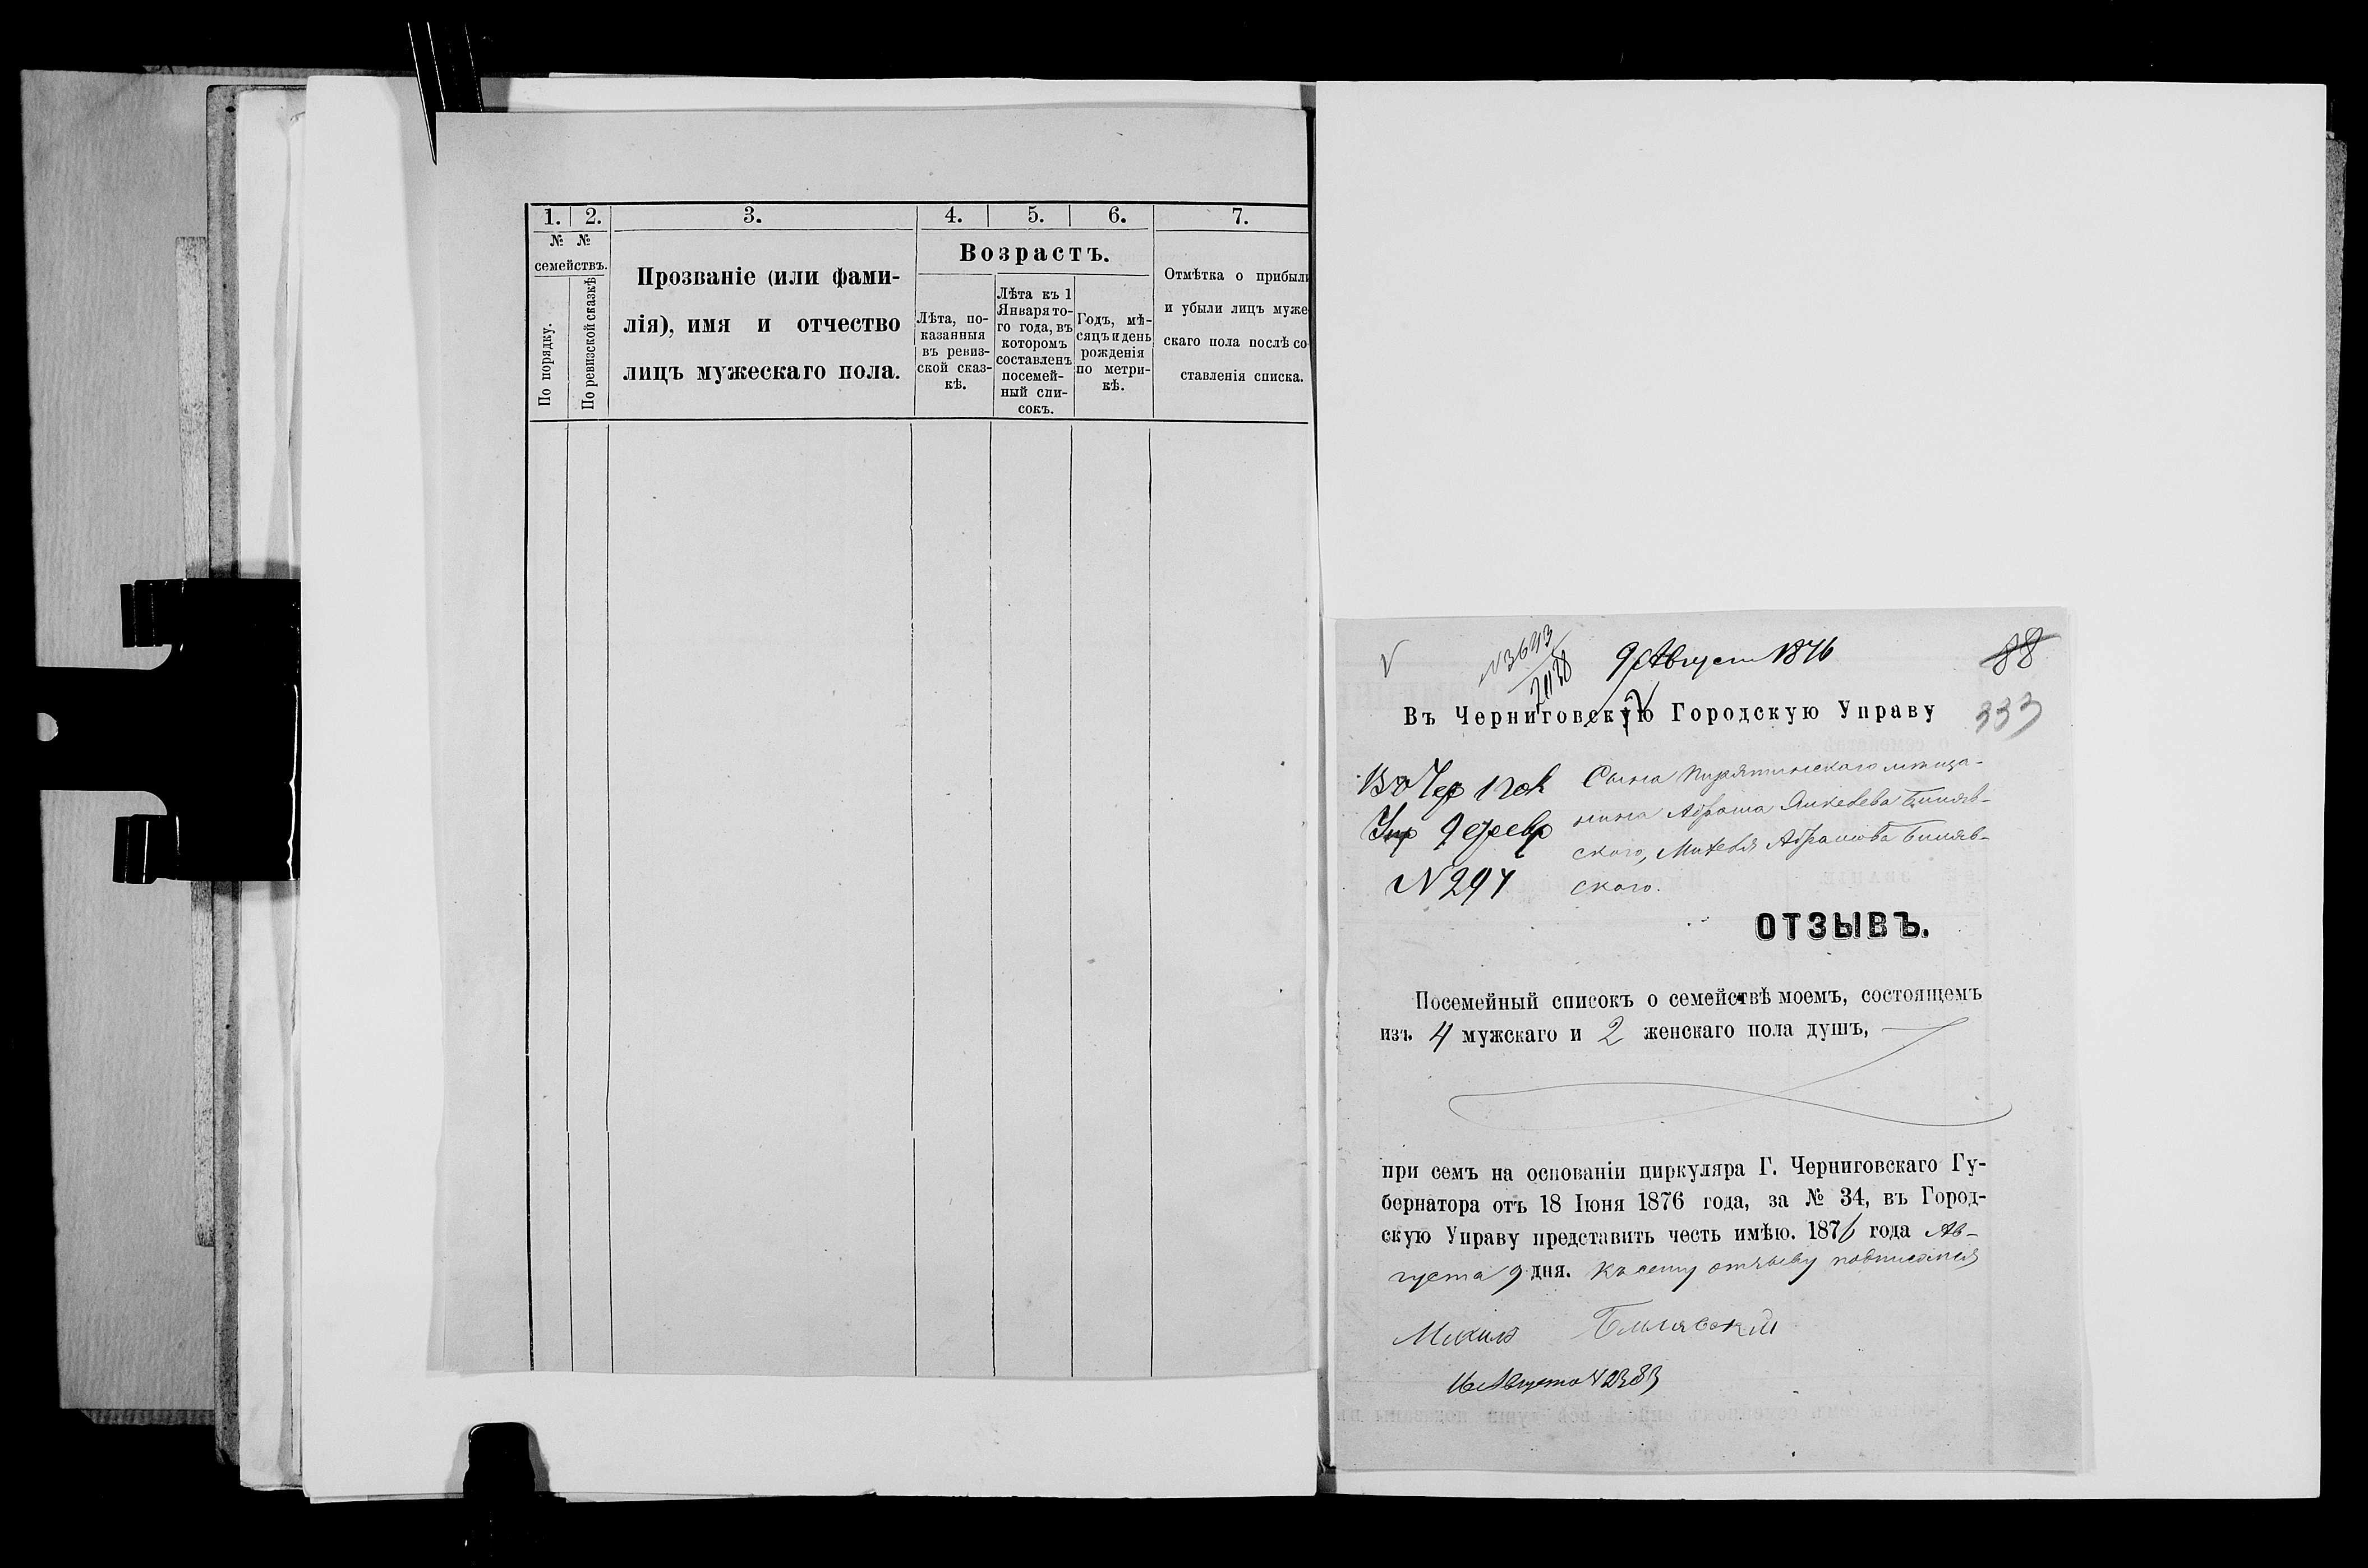 1. 2. 3. 4. 5. 6. 7.
№ № семействъ.
По порядку.
По ревизской сказкѣ
Прозваніе (или фами-
лія), имя и отчество
лицъ мужескаго пола.
Возрастъ.
Лѣта, по-
казанныя
въ ревиз-
ской сказ-
кѣ.
Лѣта къ 1
Января то-
го года, въ
которомъ
составленъ
посемей-
ный спи-
сокъ.
Годъ, мѣ-
сяцъ и день
рожденія
по метри-
кѣ.
Отмѣтка о прибыли
и убыли лицъ муже
скаго пола послѣ со
ставленія списка.
9 Август 1876
88
Въ Черниговскую Городскую Управу
333
Сына Пирятинскаго мѣща-
нина Абрама Янкелева Биляв-
скаго, Михеля Абрамова Биляв-
скаго.
№ 297
ОТЗЫВЪ.
Посемейный списокъ о семействѣ моемъ, состоящемъ
изъ 4 мужскаго и 2 женскаго пола душъ,
при семъ на основаніи циркуляра Г. Черниговскаго Гу-
бернатора отъ 18 Іюня 1876 года, за № 34, въ Город-
скую Управу представить честь имѣю. 1876 года Ав-
густа 9 дня. Къ сему отзыву подписался
Билявский